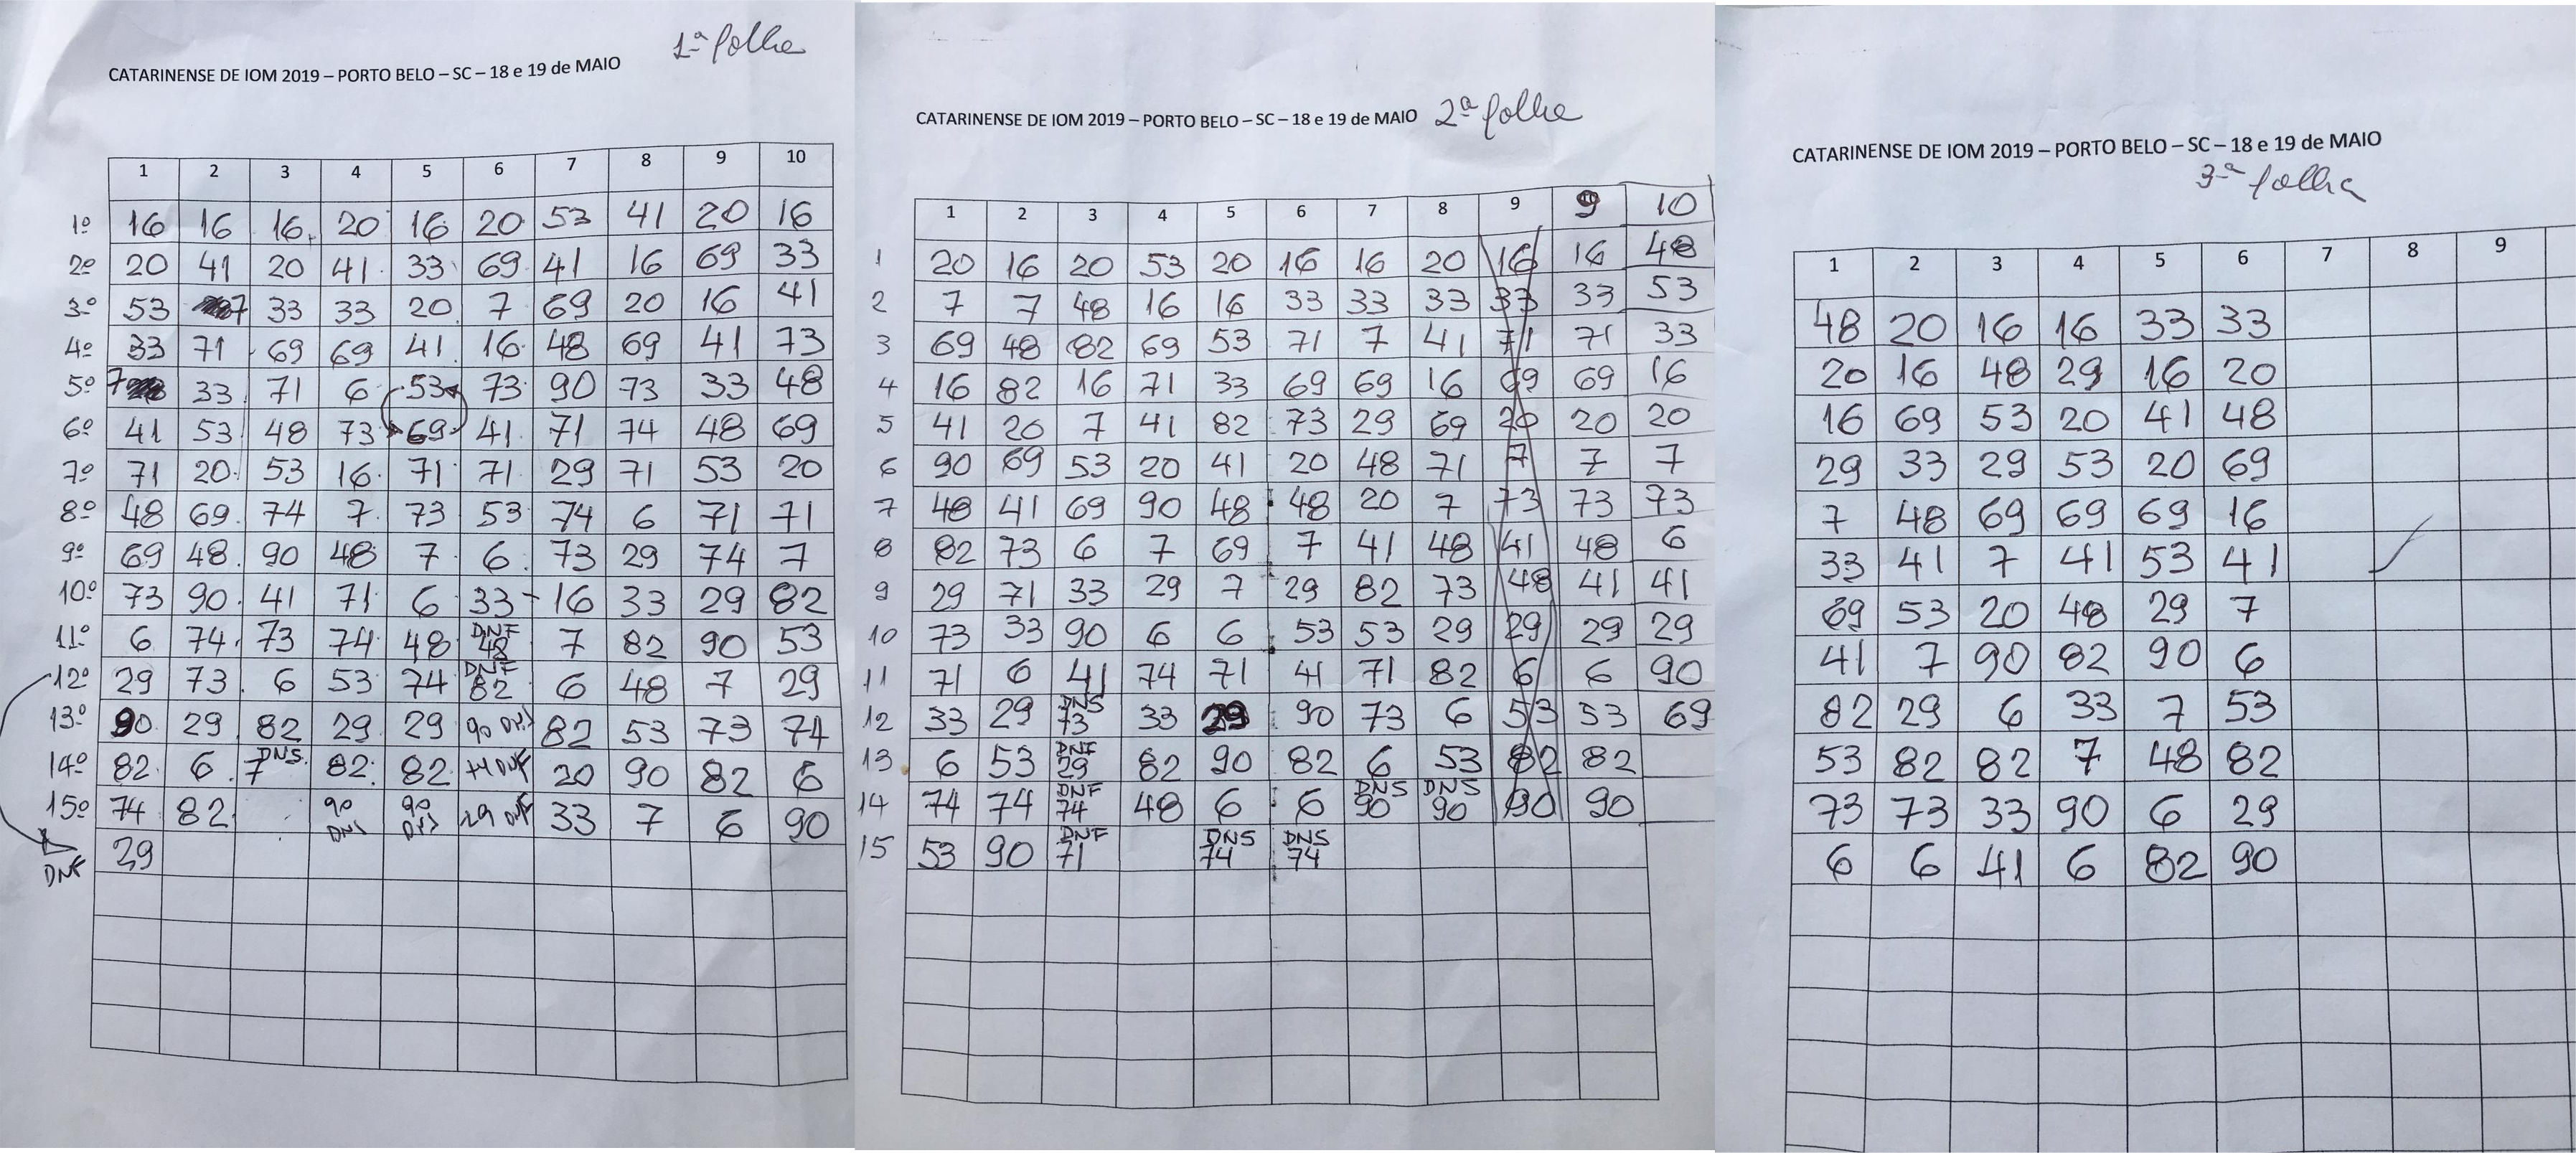 1ª folha
CATARINENSE DE IOM 2019 – PORTO BELO – SC – 18 e 19 de MAIO
1 2 3 4 5 6 7 8 9 10
1º 16 16 16 20 16 20 53 41 20 16
2º 20 41 20 41 33 69 41 16 69 33
3º 53 7 33 33 20 7 69 20 16 41
4º 33 71 69 69 41 16 48 69 41 73
5º 7 33 71 6 53 73 90 73 33 48
6º 41 53 48 73 69 41 71 74 48 69
7º 71 20 53 16 71 71 29 71 53 20
8º 48 69 74 7 73 53 74 6 71 71
9º 69 48 90 48 7 6 73 29 74 7
10º 73 90 41 71 6 33 16 33 29 82
11º 6 74 73 74 48 DNF 48 7 82 90 53
12º 29 73 6 53 74 DNF 82 6 48 7 29
13º 90 29 82 29 29 90 DNS 82 53 73 74
14º 82 6 7 DNS 82 82 74 DNF 20 90 82 6
15º 74 82 90 DNS 90 DNS 29 DNF 33 7 6 90
DNF 29
2ª folha
CATARINENSE DE IOM 2019 – PORTO BELO – SC – 18 e 19 de MAIO
1 2 3 4 5 6 7 8 9 9 10
1 20 16 20 53 20 16 16 20 16 16 48
2 7 7 48 16 16 33 33 33 33 33 53
3 69 48 82 69 53 71 7 41 71 71 33
4 16 82 16 71 33 69 69 16 69 69 16
5 41 20 7 41 82 73 29 69 20 20 20
6 90 69 53 20 41 20 48 71 7 7 7
7 48 41 69 90 48 48 20 7 73 73 73
8 82 73 6 7 69 7 41 48 41 48 6
9 29 71 33 29 7 29 82 73 48 41 41
10 73 33 90 6 6 53 53 29 29 29 29
11 71 6 41 74 71 41 71 82 6 6 90
12 33 29 DNS 73 33 29 90 73 6 53 53 69
13 6 53 DNF 29 82 90 82 6 53 82 82
14 74 74 DNF 74 48 6 6 DNS 90 DNS 90 90 90
15 53 90 DNF 71 DNS 74 DNS 74
CATARINENSE DE IOM 2019 – PORTO BELO – SC – 18 e 19 de MAIO
3ª folha
1 2 3 4 5 6 7 8 9
48 20 16 16 33 33
20 16 48 29 16 20
16 69 53 20 41 48
29 33 29 53 20 69
7 48 69 69 69 16
33 41 7 41 53 41
69 53 20 48 29 7
41 7 90 82 90 6
82 29 6 33 7 53
53 82 82 7 48 82
73 73 33 90 6 29
6 6 41 6 82 90